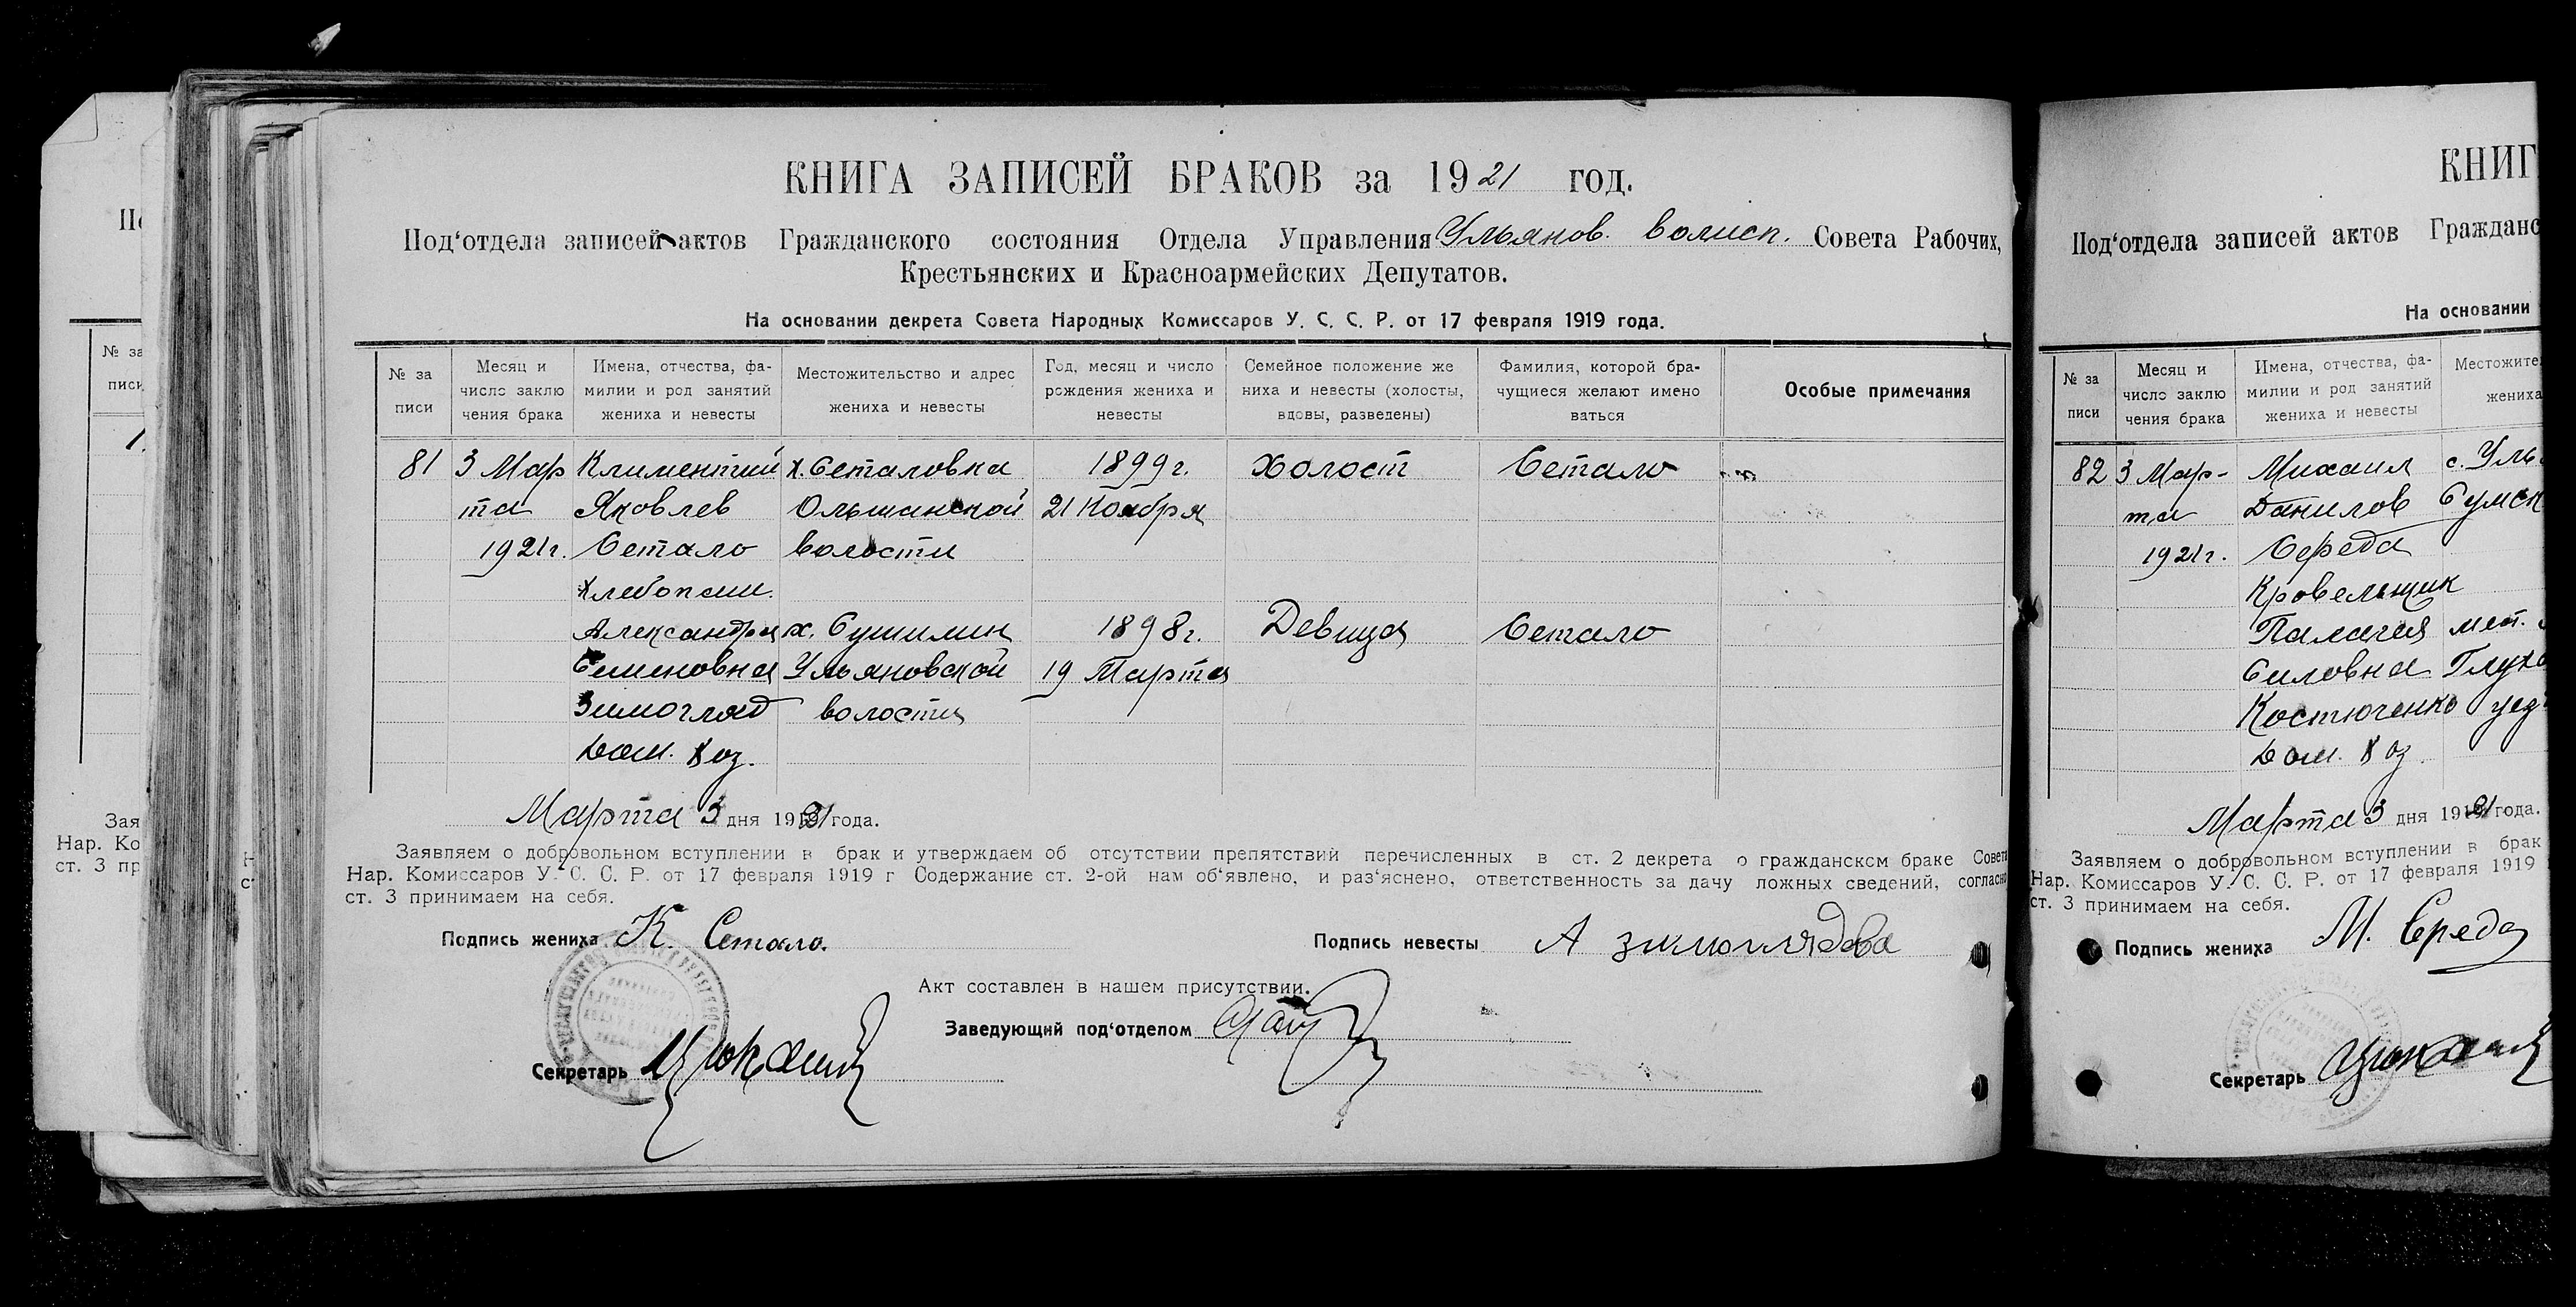 КНИГА ЗАПИСЕЙ БРАКОВ за 1921 год.
Под‘отдела записей актов Гражданского состояния Отдела Управления Ульянов. волисп. Совета Рабочих,
Крестьянских и Красноармейских Депутатов.
На основании декрета Совета Народных Комиссаров У. С. С. Р. от 17 февраля 1919 года.
№ за
писи
Месяц и
число заклю
чения брака
Имена, отчества, фа-
милии и род занятий
жениха и невесты
Местожительство и адрес
жениха и невесты
Год, месяц и число
рождения жениха и
невесты
Семейное положение же
ниха и невесты (холосты,
вдовы, разведены)
Фамилия, которой бра-
чущиеся желают имено
ваться
Особые примечания
81 3 Мар Климентий х. Сеталовка 1899 г. Холост Сетало
та Яковлев Ольшанской 21 Ноября
1921 г. Сетало волости
Хлебопаш.
Александра х. Сушилин 1898 г. Девица Сетало
Семеновна Ульяновской 19 Марта
Зимогляд волости
Дом. Хоз.
Марта 3 дня 1921 года.
Заявляем о добровольном вступлении в брак и утверждаем об отсутствии препятствий перечисленных в ст. 2 декрета о гражданском браке Совета
Нар. Комиссаров У. С. С. Р. от 17 февраля 1919 г Содержание ст. 2-ой нам об‘явлено, и раз‘яснено, ответственность за дачу ложных сведений, согласно
ст. 3 принимаем на себя.
Подпись жениха К. Сетало.
Подпись невесты А зимоглядова
Акт составлен в нашем присутствии.
Заведующий под‘отделом
Секретарь
КНИГ
Под‘отдела записей актов Гражданс
На основании
№ за
писи
Месяц и
число заклю
чения брака
Имена, отчества, фа-
милии и род занятий
жениха и невесты
Местожите
жениха
82 3 Мар- Михаил с. Уль
та Данилов Сумск
1921 г. Середа
Кровельщик
Палагея мест.
Силовна Глухо
Костюченко уед
Дом. Хоз.
Марта 3 дня 1921 года.
Заявляем о добровольном вступлении в брак
Нар. Комиссаров У. С. С. Р. от 17 февраля 1919
ст. 3 принимаем на себя.
Подпись жениха М. Середа
Секретарь
№ за
писи
Зая
Нар. Ко
ст. 3 пр